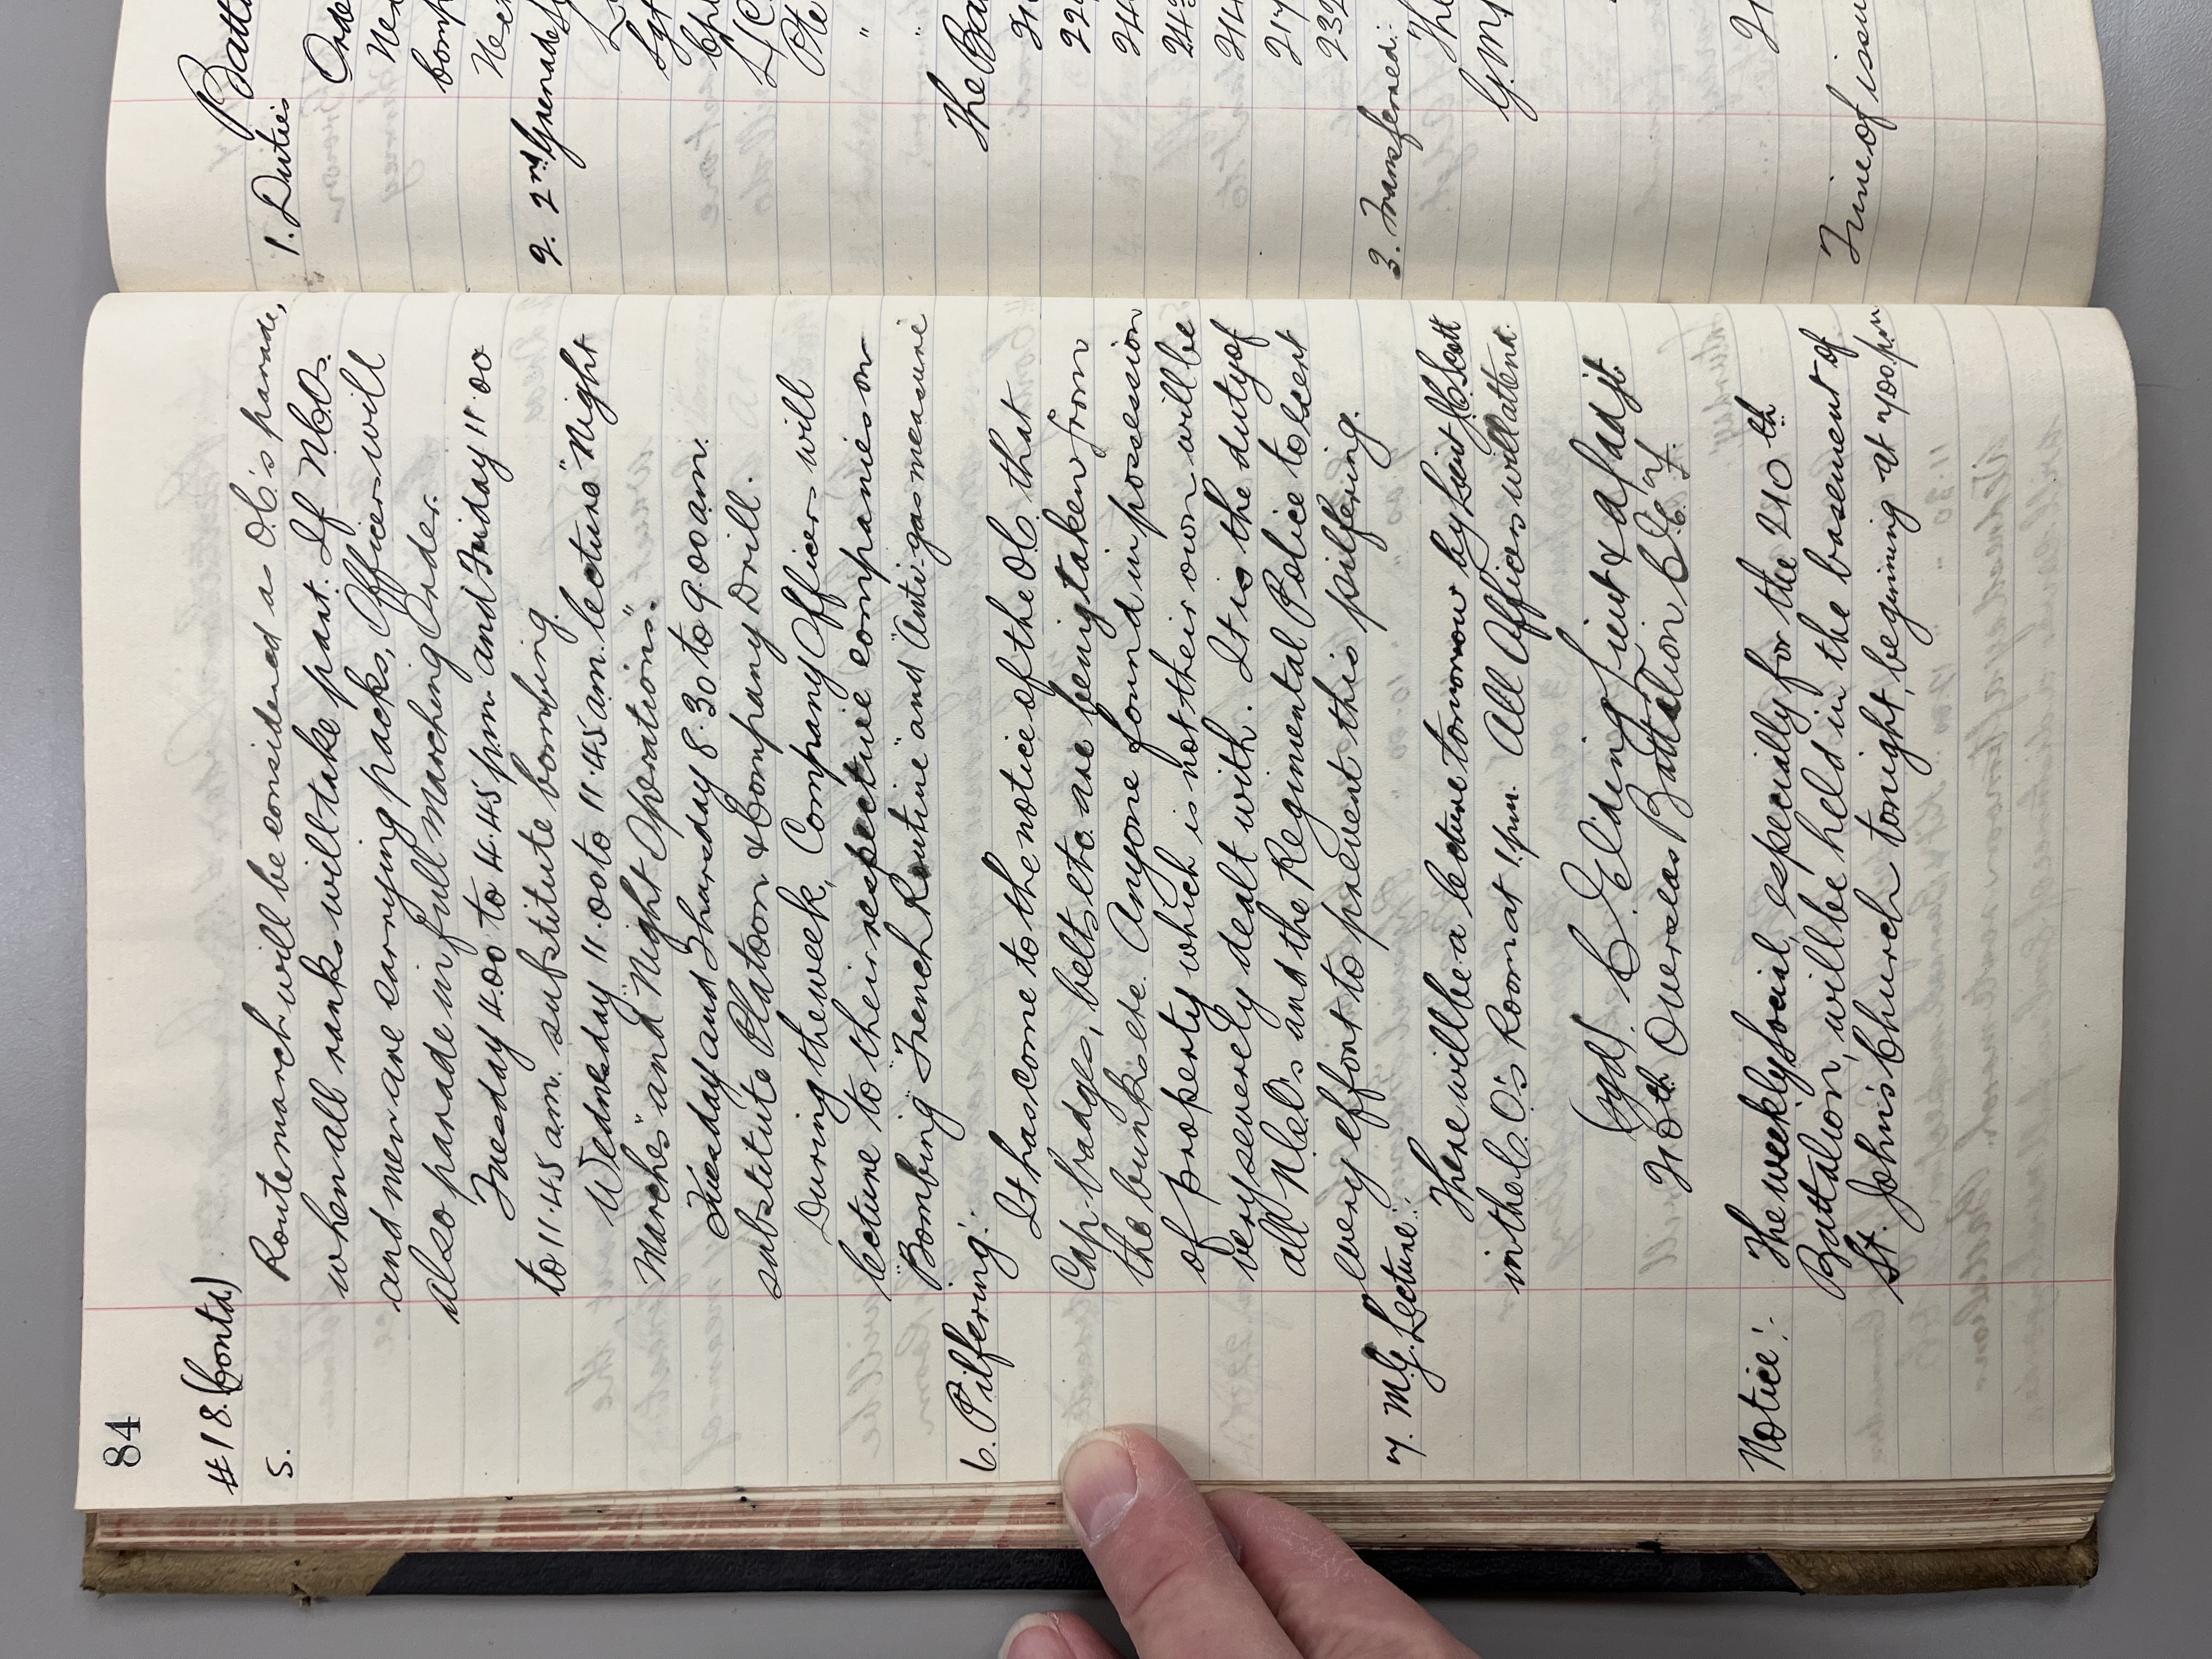 84
#18 (Contd)
5. Routemarch will be considered as O.C's parade,
when all ranks will take part. If N.C.Os.
and men are carrying packs, Officers will
also parade in full marching Order.
Tuesday 4.00 to 4.45 p.m and Friday 11.00
to 11.45 am. substitute bombing.
Wednesday 11.00 to 11.45 am. lectures "Night
Marches" and "Night Operations".
Tuesday and Thursday 8.30 to 9.00 am.
substitute Platoon & Company Drill.
During the week, Company Officers will
lecture to their respective companies on
"Bombing" "Trench Routine" and "Anti-gas measure"
6. Pilfering:-
It has come to the notice of the O.C. that
Cap-badges, belts etc. are being taken from
the bunks etc. Anyone found in possession
of property which is not their own will be
very severely dealt with. It is the duty of
all N.C.O's and the Regimental Police to exert
every effort to prevent this pilfering.
7. M.G. Lecture:-
There will be a lecture tomorrow by Lieut J.C. Scott
in the C.O's Room at 1 pm. All Officers will attend.
(Sgd) C. Eliding Lieut & a/adjt.
210th Overseas Battalion C.E.F.
Notice:-
The weekly social, especially for the 210th
Battalion, will be held in the basement of
St. John's Church tonight, beginning at 7.00 p.m
Batt
1. Duties
Orde
Nex
bomp
Nex
2. 2nd Grenade
Sgt
Cpl
L/C
Pte
"
"
The Ba
3. Transferred:-
The
G.M
Time of issu